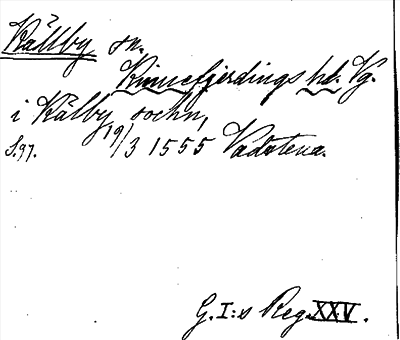 Källby sn.
Kinnefjerdings hd. Vg.
i Kälby sochn,
S.97. 19/3 1555 Vadstena.
G.I:s Reg. XXV.